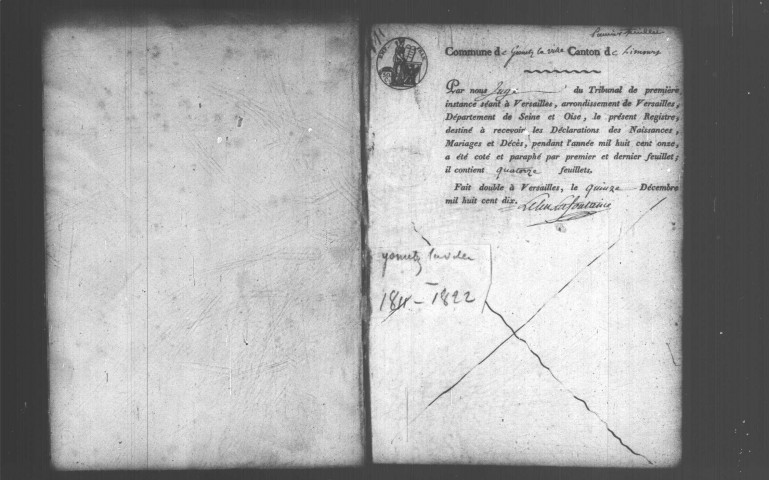 premier feuillet
Commune de Gometz la ville Canton de Limours
Par nous Juge du Tribunal de première
instance séant à Versailles, arrondissement de Versailles,
Département de Seine et Oise, le présent Registre,
destiné à recevoir les Déclarations des Naissances,
Mariages et Décès, pendant l'année mil huit cent onze,
a été coté et paraphé par premier et dernier feuillet;
il contient quatorze feuillets.
Fait double à Versailles, le quinze Décembre
mil huit cent dix.
1811 - 1822